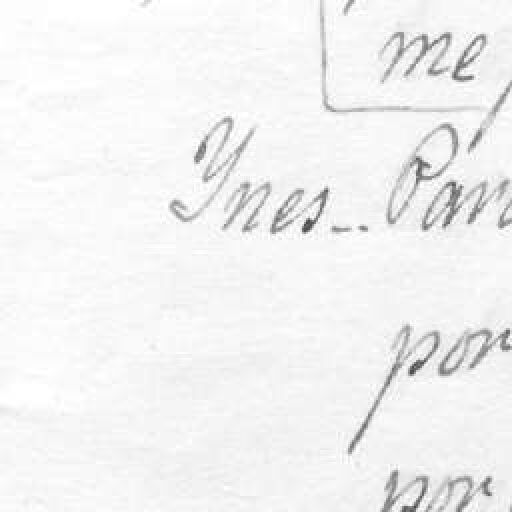 me
Ynes.. Para
por
por